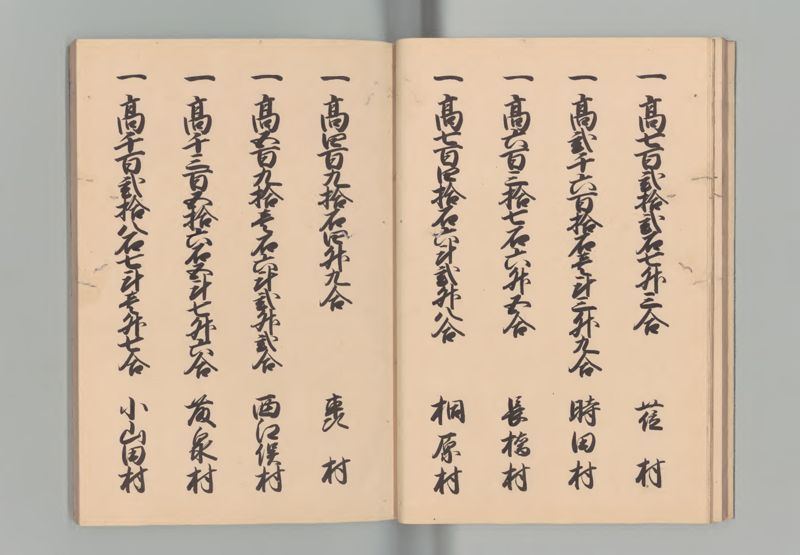 一 高七百弐拾弐石七升三合 莅村
一 高弐千六百拾石壱斗三升九合 時田村
一 高六百三拾七石六升五合 長橋村
一 高七百四拾石六斗弐升八合 桐原村
一 高四百九拾石四升九合 村
一 高五百九拾壱石六斗弐升弐合 西江俣村
一 高千三百五拾六石五斗七升六合 泉村
一 高千百弐拾八石七斗壱升七合 小山田村